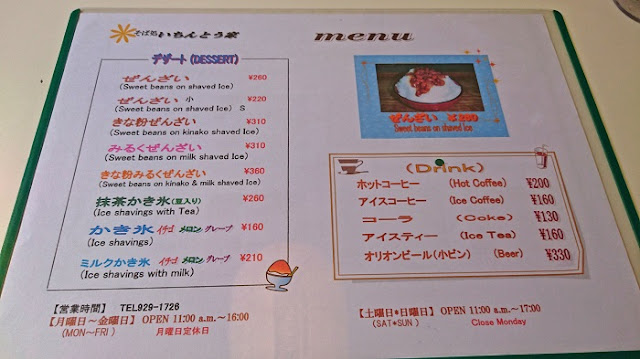 そば処 いちんとう家
デザート (DESSERT)
ぜんざい ¥260
(Sweet beans on shaved Ice)
ぜんざい 小 ¥220
(Sweet beans on shaved Ice) S
きな粉ぜんざい ¥310
(Sweet beans on kinako shaved Ice)
みるくぜんざい ¥310
(Sweet beans on milk shaved Ice)
きな粉みるくぜんざい ¥360
(Sweet beans on kinako & milk shaved Ice)
抹茶かき氷(豆入り) ¥260
(Ice shavings with Tea)
かき氷 イチゴ メロン グレープ ¥160
(Ice shavings)
ミルクかき氷 イチゴ メロン グレープ ¥210
(Ice shavings with milk)
【営業時間】 TEL929-1726
【月曜日～金曜日】 OPEN 11:00 a.m.～16:00
(MON～FRI) 月曜日定休日
menu
ぜんざい ¥260
Sweet beans on shaved Ice
(Drink)
ホットコーヒー (Hot Coffee) ¥200
アイスコーヒー (Ice Coffee) ¥160
コーラ (Coke) ¥130
アイスティー (Ice Tea) ¥160
オリオンビール(小ビン) (Beer) ¥330
【土曜日*日曜日】 OPEN 11:00 a.m.～17:00
(SAT*SUN) Close Monday